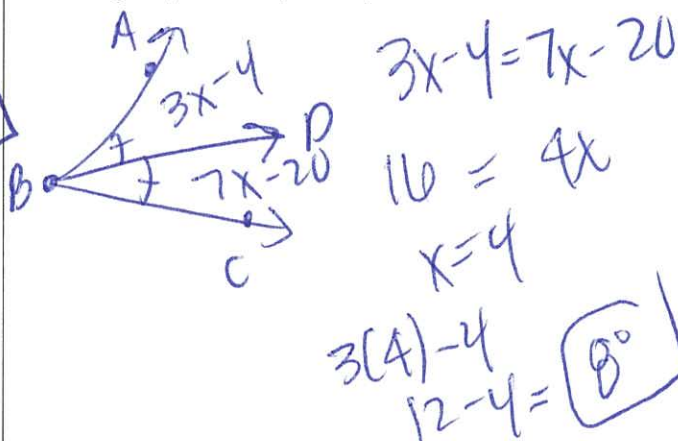 A
3x-4
D
B
7x-20
C
3x-4=7x-20
16 = 4x
x=4
3(4)-4
12-4= 8°